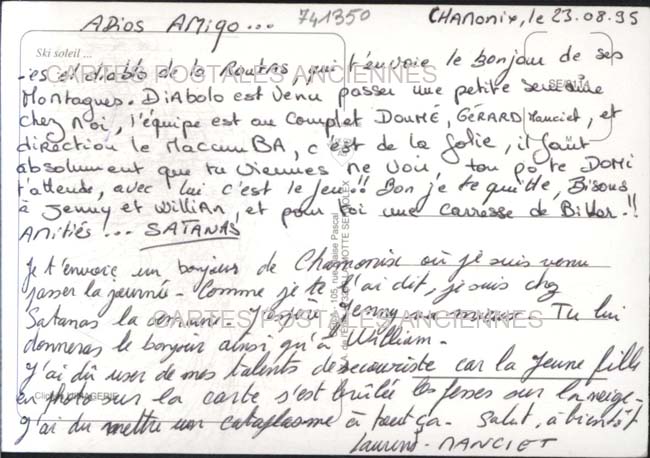 ADIOS AMIGO... 741350 CHAMONIX, le 23.08.95
Ski soleil ...
-es el diablo de la Routas, qui t'envoie le bonjour de ses
Montagnes. DIABOLO est venu passer une petite semaine
chez moi, l'équipe est au complet DOUMÉ, GÉRARD Manciet, et
direction le MACCUMBA, c'est de la folie, il faut
absolument que tu viennes me voir, ton pote DOMI
t'attends, avec lui c'est le jeu!! Bon je te quitte, Bisous
à Jenny et WilliAn, et pour toi une carresse de Biker.!!
AMitiés... SATANAS
Je t'envoie un bonjour de Chamonix où je suis venu
passer la journée - Comme je te l'ai dit, je suis chez
Satanas la semaine. J'espère Jenny va mieux. Tu lui
donneras le bonjour ainsi qu'à William.
J'ai dû user de mes talents de secouriste car la jeune fille
en photo sur la carte s'est brûlée les fesses sur la neige.
J'ai du mettre un cataplasme à tout ça. Salut, à bientôt
Laurent. MANCIET
CARTES POSTALES ANCIENNES
CARTES POSTALES ANCIENNES